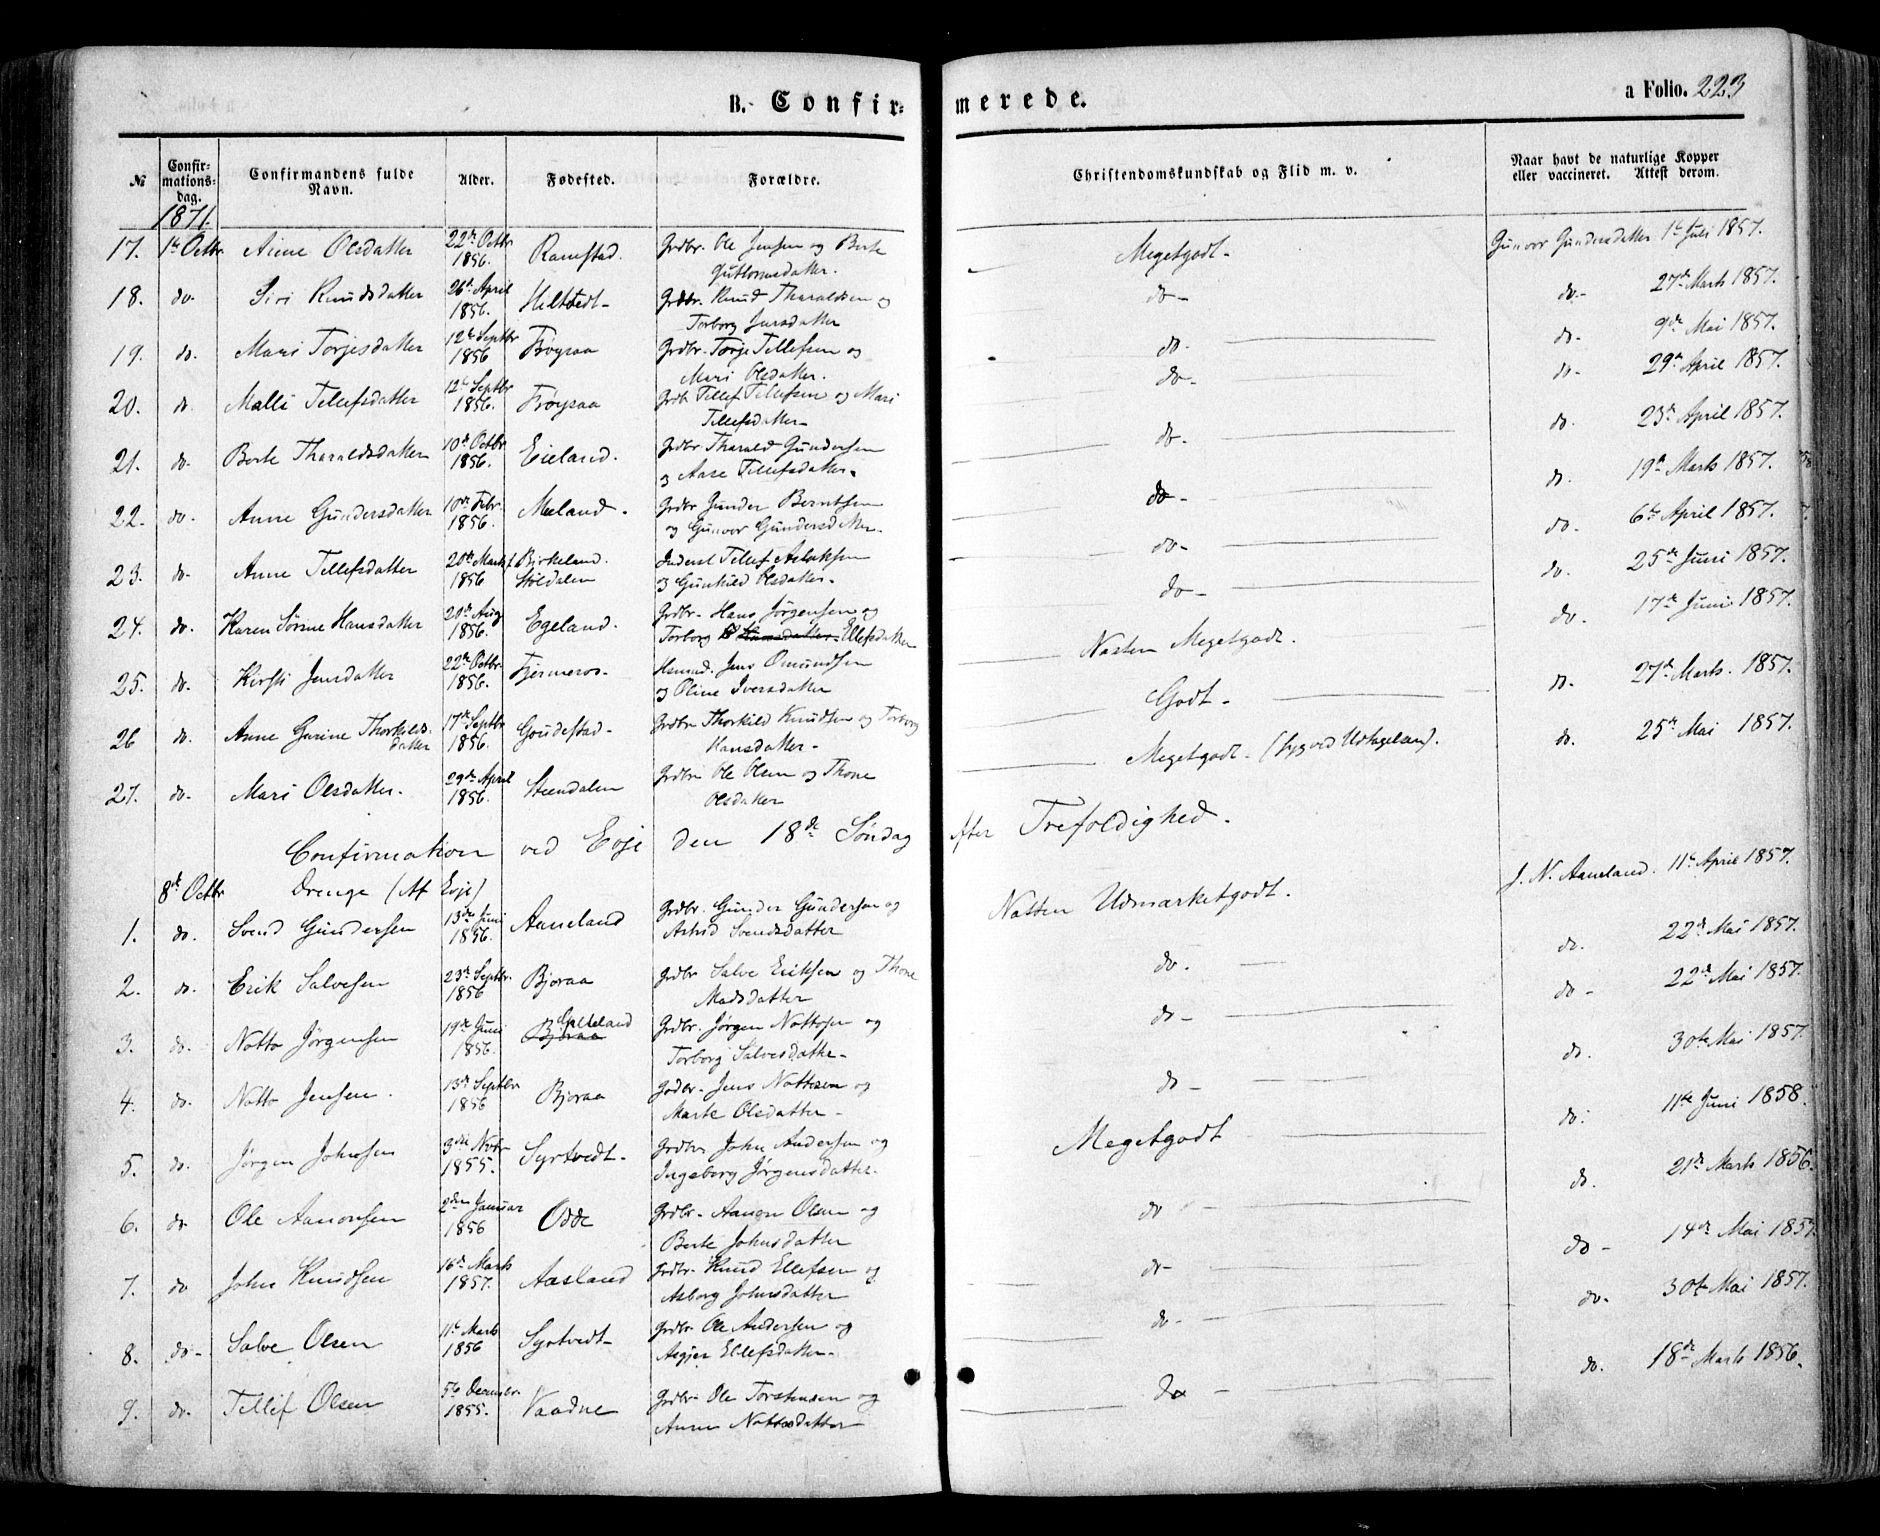 B. Confirmerede.
a Folio. 223
№ Confirmationsdag. Confirmandens fulde Navn. Alder. Fødested. Forældre. Christendomskundskab og Flid m. v. Naar havt de naturlige Kopper eller vaccineret. Attest derom.
1871.
17. 1te Octbr Anne Olsdatter 22de Octbr 1856. Ramstad. Grdbr. Ole Jensen og Berte Guttormsdatter. Megetgodt. Gunvor Gundersdatter 1te Juli 1857.
18. do. Siri Knudsdatter 26de April 1856. Hiltvedt. Grdbr. Knud Tharaldsen og Torborg Jensdatter do 27de Marts 1857.
19. do. Mari Torjesdatter 12te Septbr 1856 Frøysaa Grdbr. Torje Tellefsen og Mari Olsdatter. do. do. 9de Mai 1857.
20. do. Malli Tellefsdatter 12te Septbr 1856. Frøysaa Grdb. Tellef Tellefsen og Mari Tellefsdatter do do. 29de April 1857.
21. do. Berte Tharaldsdatter 10de Octbr 1856. Eieland. Grdbr Tharald Gundersen og Aase Tellefsdatter. do. do. 23de April 1857.
22. do. Anne Gundersdatter 10de Febr 1856. Meland. Grdbr Gunder Berntsen og Gunvor Gundersdatter. do do. 19de Marts 1857.
23. do. Anne Tellefsdatter 20de Marts 1856 Birkeland. Støldalen Inderst Tellef Aslaksen og Gunhild Olsdatter. do do. 6te April 1857.
24. do. Karen Sørine Hansdatter 20de Aug 1856. Egeland. Grdbr. Hans Jørgensen og Torborg Ellefsdatter do do. 25de Juni 1857.
25. do. Kirsti Jensdatter 22de Octbr 1856. Fjermeros. Husmd. Jens Omundsen og Oline Iversdatter Næsten Megetgodt. do. 17de Juni 1857.
26 do. Anne Gurine Thorkildsdatter 17de Septbr 1856. Goudestad Grdbr Thorkild Knudsen og Torborg Hansdatter Godt. do. 27de Marts. 1857.
27. do. Mari Olsdatter. 29de April 1856. Steendalen Grdbr Ole Olsen og Thone Olsdatter Megetgodt. (syg ved Udtagelsen). do. 25de Mai 1857.
Confirmation ved Evje den 18de Søndag after Trefoldighed.
8de Octbr Drenge (Af Evje)
1. do. Svend Gundersen 13de Juni 1856. Aaneland Grdbr. Gunder Gundersen og Astrid Svendsdatter Næsten Udmærketgodt. J. N. Aaneland. 11te April 1857.
2. do. Erik Salvesen 23de Septbr. 1856 Bjoraa Grdbr Salve Eriksen og Thone Madsdatter do. do. 22de Mai 1857.
3. do. Notto Jørgensen 19de Juni 1856. Bjoraa Grdbr. Jørgen Nottosen og Torborg Salvesdatter do do 22de Mai 1857.
4. do. Notto Jensen. 13de Septbr 1856 Bjoraa Grdbr. Jens Nottesen og Marte Olsdatter do do. 30te Mai 1857.
5. do. Jørgen Johnsen 3die Novbr 1855. Syrtvedt. Grdbr John Andersen og Ingeborg Jørgensdatter. Megetgodt do. 11te Juni 1858.
6. do Ole Aanonsen 2den Januar 1856 Odde Grdbr. Aanon Olsen og Berte Johnsdatter do do. 21de Marts 1856.
7. do John Knudsen 16de Marts 1857. Aasland Grdbr. Knud Ellefsen og Asborg Johnsdatter do do 14de Mai 1857.
8. do Salve Olsen 11te Marts 1856 Syrtvedt Grdbr Ole Andersen og Asgjer Ellefsdatter. do do. 30te Mai 1857.
9. do. Tellef Olsen 5te December 1855. Vaadne Grdbr. Ole Torstensen og Anne Nottosdatter do do. 18de Marts 1856.